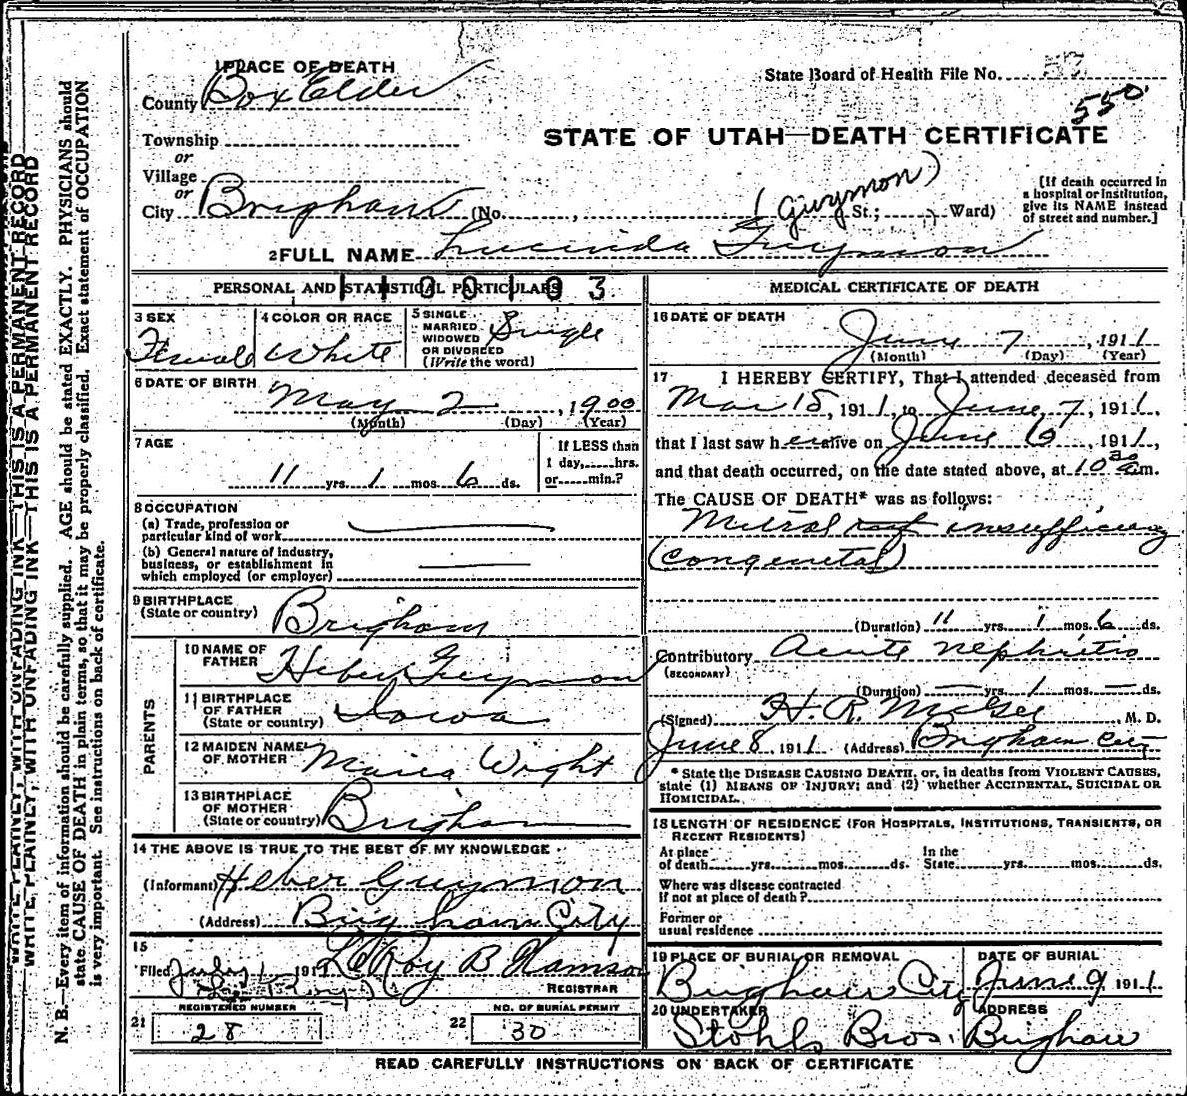 1 PLACE OF DEATH
County Box Elder
Township
or
Village
or
City Brigham (No. , St.; Ward)
(Guymon)
State Board of Health File No.
550
STATE OF UTAH—DEATH CERTIFICATE
[If death occurred in
a hospital or institution,
give its NAME instead
of street and number.]
2 FULL NAME Lucinda Guymon
PERSONAL AND STATISTICAL PARTICULARS
1100103
3 SEX
Female
4 COLOR OR RACE
White
5 SINGLE
MARRIED
WIDOWED
OR DIVORCED
(Write the word)
Single
6 DATE OF BIRTH
May 2, 1900
(Month) (Day) (Year)
7 AGE
11 yrs. 1 mos. 6 ds.
If LESS than
1 day, hrs.
or min.?
8 OCCUPATION
(a) Trade, profession or
particular kind of work
(b) General nature of industry,
business, or establishment in
which employed (or employer)
9 BIRTHPLACE
(State or country)
Brigham
PARENTS
10 NAME OF
FATHER
Heber Guymon
11 BIRTHPLACE
OF FATHER
(State or country)
Iowa
12 MAIDEN NAME
OF MOTHER
Maria Wright
13 BIRTHPLACE
OF MOTHER
(State or country)
Brigham
14 THE ABOVE IS TRUE TO THE BEST OF MY KNOWLEDGE
(Informant) Heber Guymon
(Address) Brigham City
15
Filed July 1 191
REGISTRAR
REGISTERED NUMBER
21 28
NO. OF BURIAL PERMIT
22 30
MEDICAL CERTIFICATE OF DEATH
16 DATE OF DEATH
June 7, 1911
(Month) (Day) (Year)
17 I HEREBY CERTIFY, That I attended deceased from
Mar 15, 1911, to June 7, 1911,
that I last saw her alive on June 6, 1911,
and that death occurred, on the date stated above, at 10 30 am.
The CAUSE OF DEATH* was as follows:
Mitral insufficiency
(congenital)
(Duration) 11 yrs. 1 mos. 6 ds.
Contributory Acute nephritis
(SECONDARY)
(Duration) — yrs. 1 mos. — ds.
(Signed) H. R. McGee, M. D.
June 8, 1911 (Address) Brigham City
* State the DISEASE CAUSING DEATH, or, in deaths from VIOLENT CAUSES,
state (1) MEANS OF INJURY; and (2) whether ACCIDENTAL, SUICIDAL OR
HOMICIDAL.
18 LENGTH OF RESIDENCE (FOR HOSPITALS, INSTITUTIONS, TRANSIENTS, OR
RECENT RESIDENTS)
At place
of death yrs. mos. ds.
In the
State yrs. mos. ds.
Where was disease contracted
if not at place of death?
Former or
usual residence
19 PLACE OF BURIAL OR REMOVAL
Brigham City
DATE OF BURIAL
June 9 1911
20 UNDERTAKER
Stohl Bros.
ADDRESS
Brigham
READ CAREFULLY INSTRUCTIONS ON BACK OF CERTIFICATE
WRITE PLAINLY, WITH UNFADING INK—THIS IS A PERMANENT RECORD
WRITE PLAINLY, WITH UNFADING INK—THIS IS A PERMANENT RECORD
N. B.—Every item of information should be carefully supplied. AGE should be stated EXACTLY. PHYSICIANS should
state CAUSE OF DEATH in plain terms, so that it may be properly classified. Exact statement of OCCUPATION
is very important. See instructions on back of certificate.